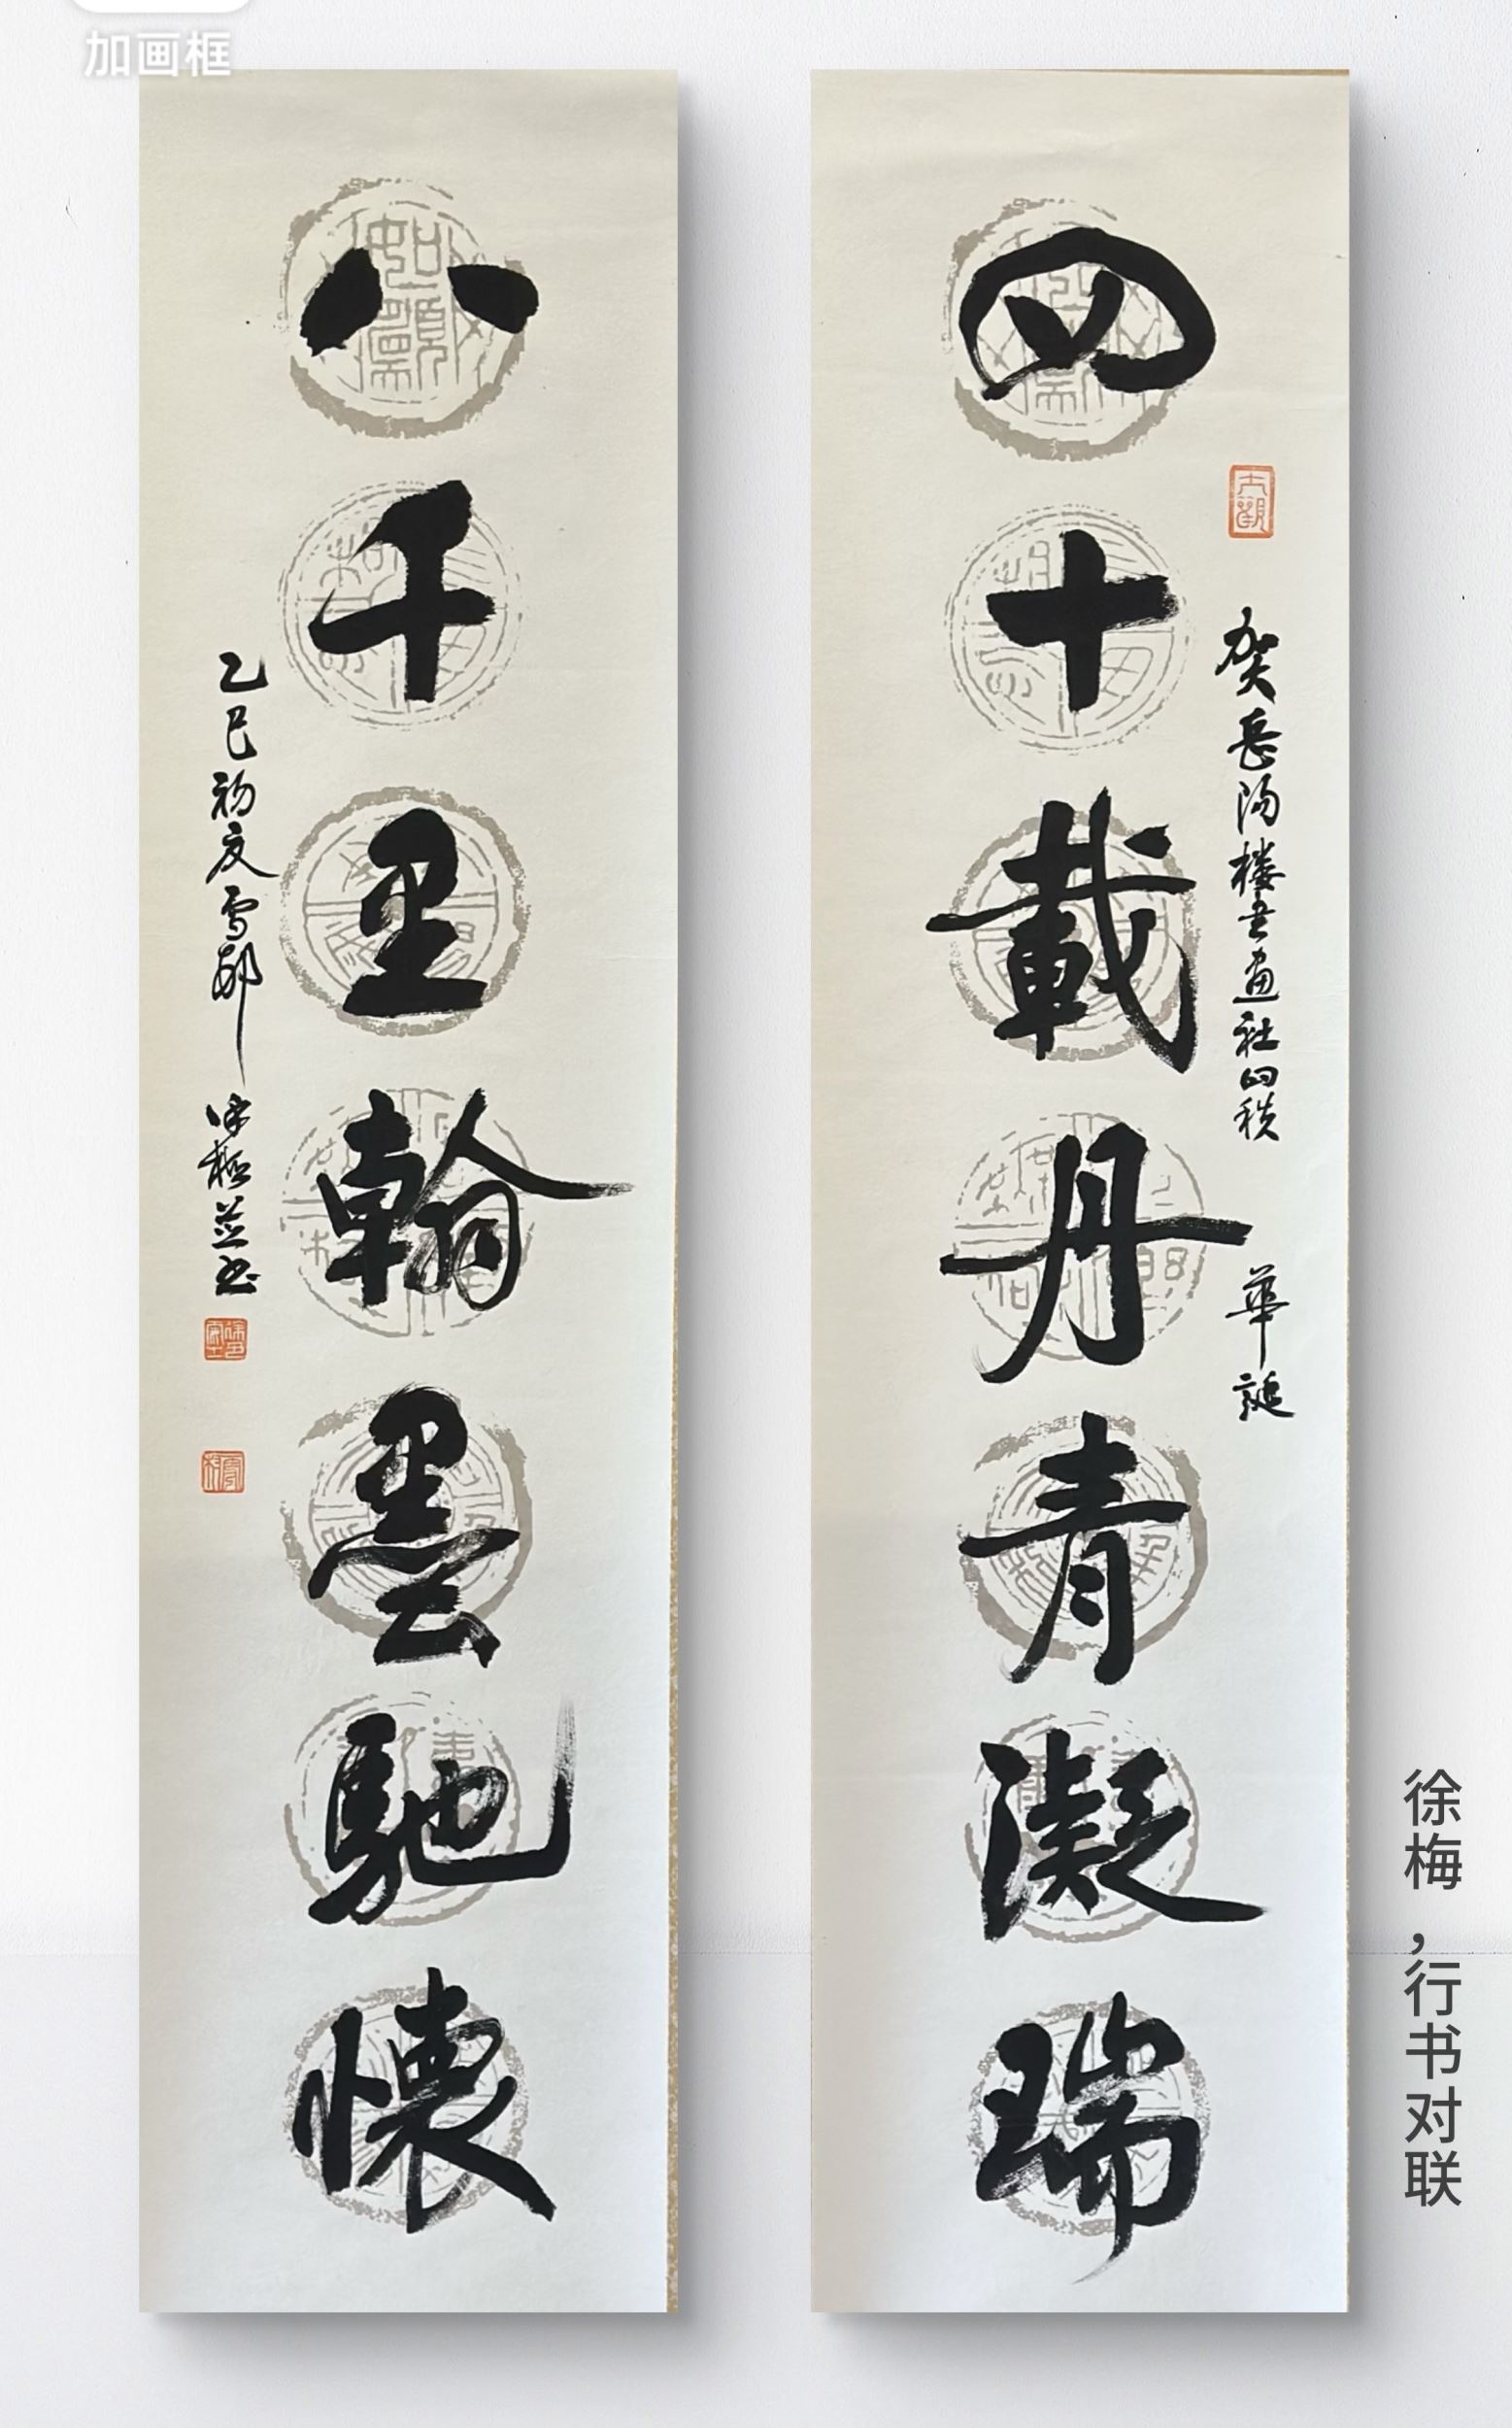 加画框
四十載丹青凝瑞
賀岳陽楼书画社四秩
華誕
八千里翰墨馳懷
乙巳初夏雪邨
徐梅並书
徐梅，行书对联